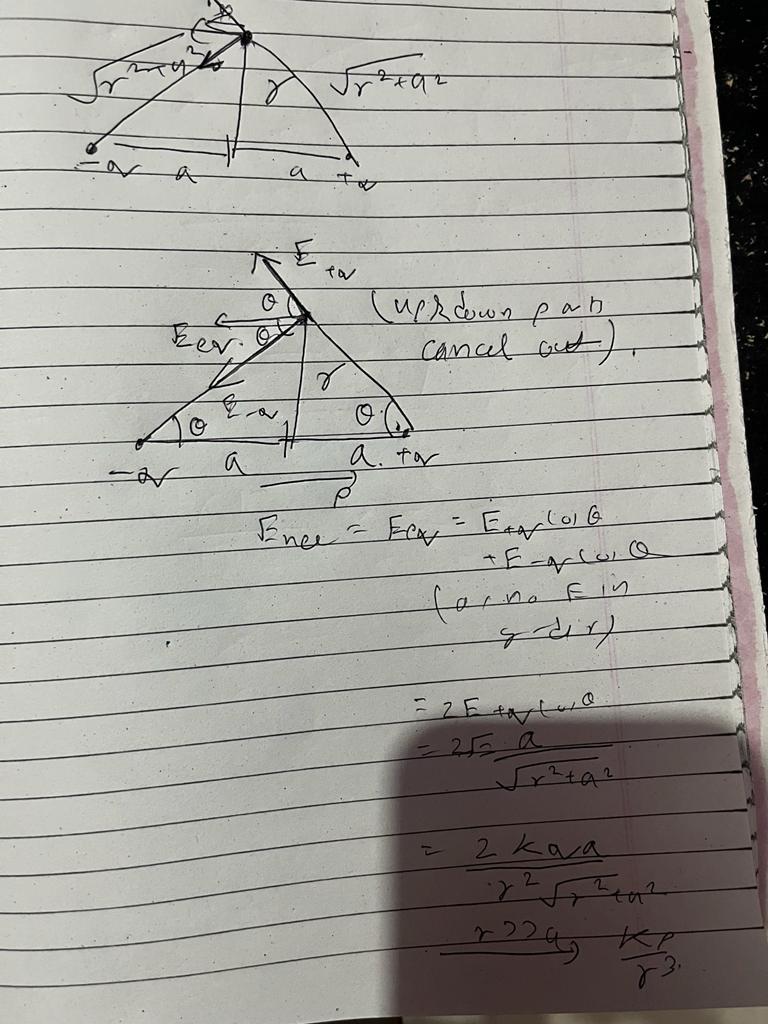 √r²+a² r √r²+a²
-q a a +q
E+q
θ (up & down part
Eeq. θ cancel out).
r
E-q
θ θ
-q a a. +q
P
Enet = Eeq = E+q cos θ
+ E-q cos θ
(as no E in
y-dir)
= 2E+q cos θ
= 2E a
√r²+a²
= 2kqa
r² √r²+a²
r>>a, kp
r³.